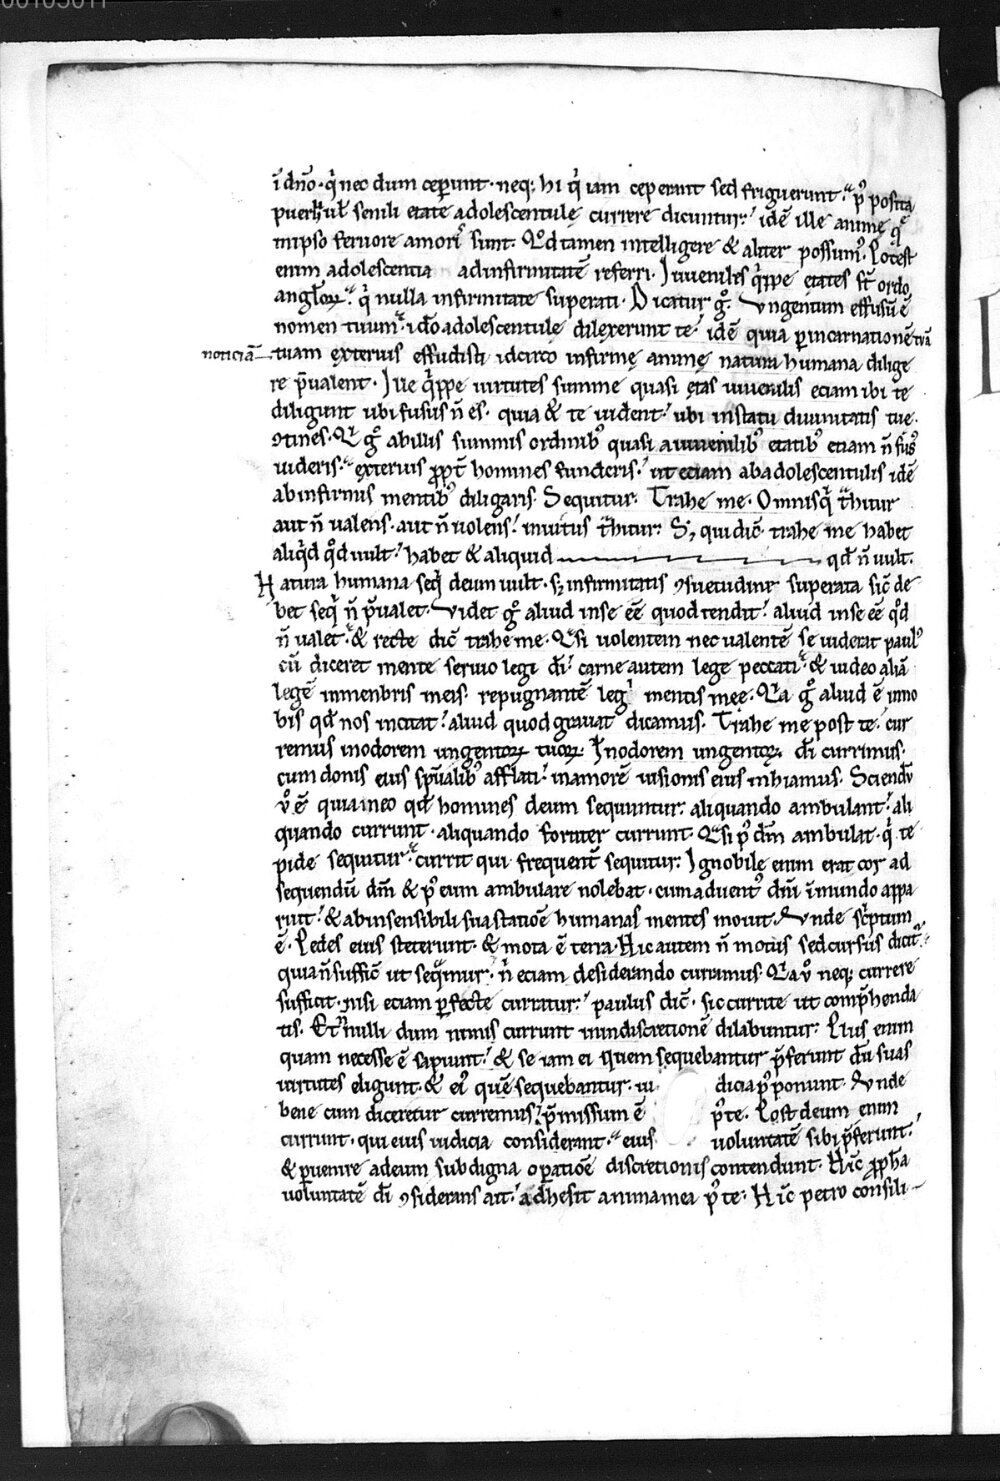 00103011
ī dn̄o · q̄ nec dum ceperunt · neq; hi q̄ iam ceperant sed friguerunt · p̄posita
puerili ul' senili etate adolescentulę currere dicuntur · idē ille animę quę
in ipso feruore amoris sunt · Qd tamen intelligere & aliter possum' · Potest
enim adolescentia ad infirmitatē referri · Iuueniles q̄ppe etates st̄ ordo
anglo℞ · q̄ nulla infirmitate superati · Dicatur g° · Vngentum effusū ē
nomen tuum · ido adolescentulę dilexerunt te · idē quia p incarnationē tuā
noticiā
tuam exterius effudisti idcirco infirmę animę natura humana dilige
re p̄ualent · Ille q̄ppe uirtutes summe quasi etas iuuenilis etiam ibi te
diligunt ubi fusus n̄ es · quia & te uident ubi in statu diuinitatis tue
ꝯtines · Qi g° ab illis summis ordinib' quasi a iuuenilib' etatib' etiam n̄ fus'
uideris · exterius ꝓpt̄ homines funderis · ut etiam ab adolescentulis idē
ab infirmis mentib' diligaris · Sequitur · Trahe me · Omnis q̄ trahitur
aut n̄ ualens · aut n̄ uolens inuitus trahitur · S; qui dic̄ trahe me habet
aliq̄d qd uult habet & aliquid qd n̄ uult ·
Natura humana seq̄ deum uult · s; infirmitatis ꝯsuetudine superata sic̄ de
bet seq̄ n̄ p̄ualet · Videt g° aliud in se ēē quo tendit aliud in se ēē qd
n̄ ualet · & recte dic̄ trahe me · Qsi uolentem nec ualentē se uiderat paul'
cū diceret mente seruio legi dī carne autem lege peccati · & uideo aliā
legē in menbris meis repugnantē legi mentis meę · Qa g° aliud ē in no
bis qd nos incitat aliud quod grauat dicamus · Trahe me post te · cur
remus in odorem ungento℞ tuo℞ · In odorem ungento℞ dī currimus ·
cum donis eius sp̄ualib' afflati in amorē uisionis eius inhiamus · Sciendū
ů ē quia in eo qd homines deum sequuntur aliquando ambulant ali
quando currunt · aliquando fortiter currunt · Qsi p' dm̄ ambulat · q̄ te
pide sequitur currit qui frequent̄ sequitur · Ignobile enim erat cor ad
sequendū dm̄ & p' eum ambulare nolebat · cum aduent' dm̄ ī mundo appa
ruit & ab insensibili sua statiōe humanas mentes mouit · Vnde sc̄ptum
ē · Pedes eius steterunt · & mota ē terra · Hic autem n̄ motus sed cursus dicit̄ ·
quia n̄ suffic̄ ut seq̄mur · n̄ etiam desiderando curramus · Qa ů neq; currere
sufficit · nisi etiam p fecte curratur · paulus dic̄ · sic currite ut comp̄henda
tis · Et nulli dum nimis currunt in indiscretionē dilabuntur · Plus enim
quam necesse ē sapiunt & se iam ei quem sequebantur p̄ferunt dū suas
uirtutes eligunt · & ei' quē sequebantur · iu dicia p'ponunt · Vnde
bene cum diceretur curremus p̄missum ē p' te · Post deum enim
currunt · qui eius iudicia considerant · eius uoluntatē sibi p̄ferunt
& puenire ad eum sub digna opatiōe discretionis contendunt · Hic̄ ꝓpha
uoluntatē dī ꝯsiderans ait adhesit anima mea p' te · Hic̄ petro consili